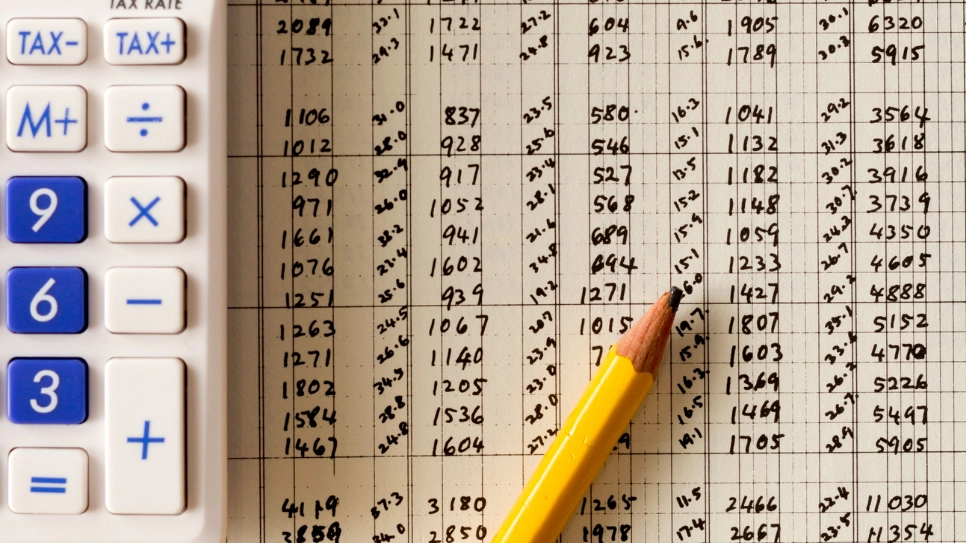 TAX RATE
TAX- TAX+
M+ ÷
9 ×
6 −
3
+
=
2089 33.1 1722 27.2 604 9.6 1905 30.1 6320
1732 29.3 1471 24.8 923 15.6 1789 30.3 5915
1106 31.0 837 23.5 580 16.3 1041 29.2 3564
1012 28.0 928 25.6 546 15.1 1132 31.3 3618
1290 32.9 917 23.4 527 13.5 1182 30.2 3916
971 26.0 1052 28.1 568 15.2 1148 30.7 3739
1661 38.2 941 21.6 689 15.9 1059 24.3 4350
1076 23.4 1602 34.8 694 15.1 1233 26.7 4605
1251 25.6 939 19.2 1271 1427 29.2 4888
1263 24.5 1067 20.7 1015 19.7 1807 35.1 5152
1271 26.6 1140 23.9 15.9 1603 33.6 4770
1802 34.5 1205 23.0 16.3 1369 26.2 5226
1584 28.8 1536 28.0 16.5 1469 26.7 5497
1467 24.8 1604 27.2 19.1 1705 28.9 5905
4119 37.3 3180 1265 11.5 2466 22.4 11030
3859 34.0 2850 1978 17.4 2667 23.5 11354